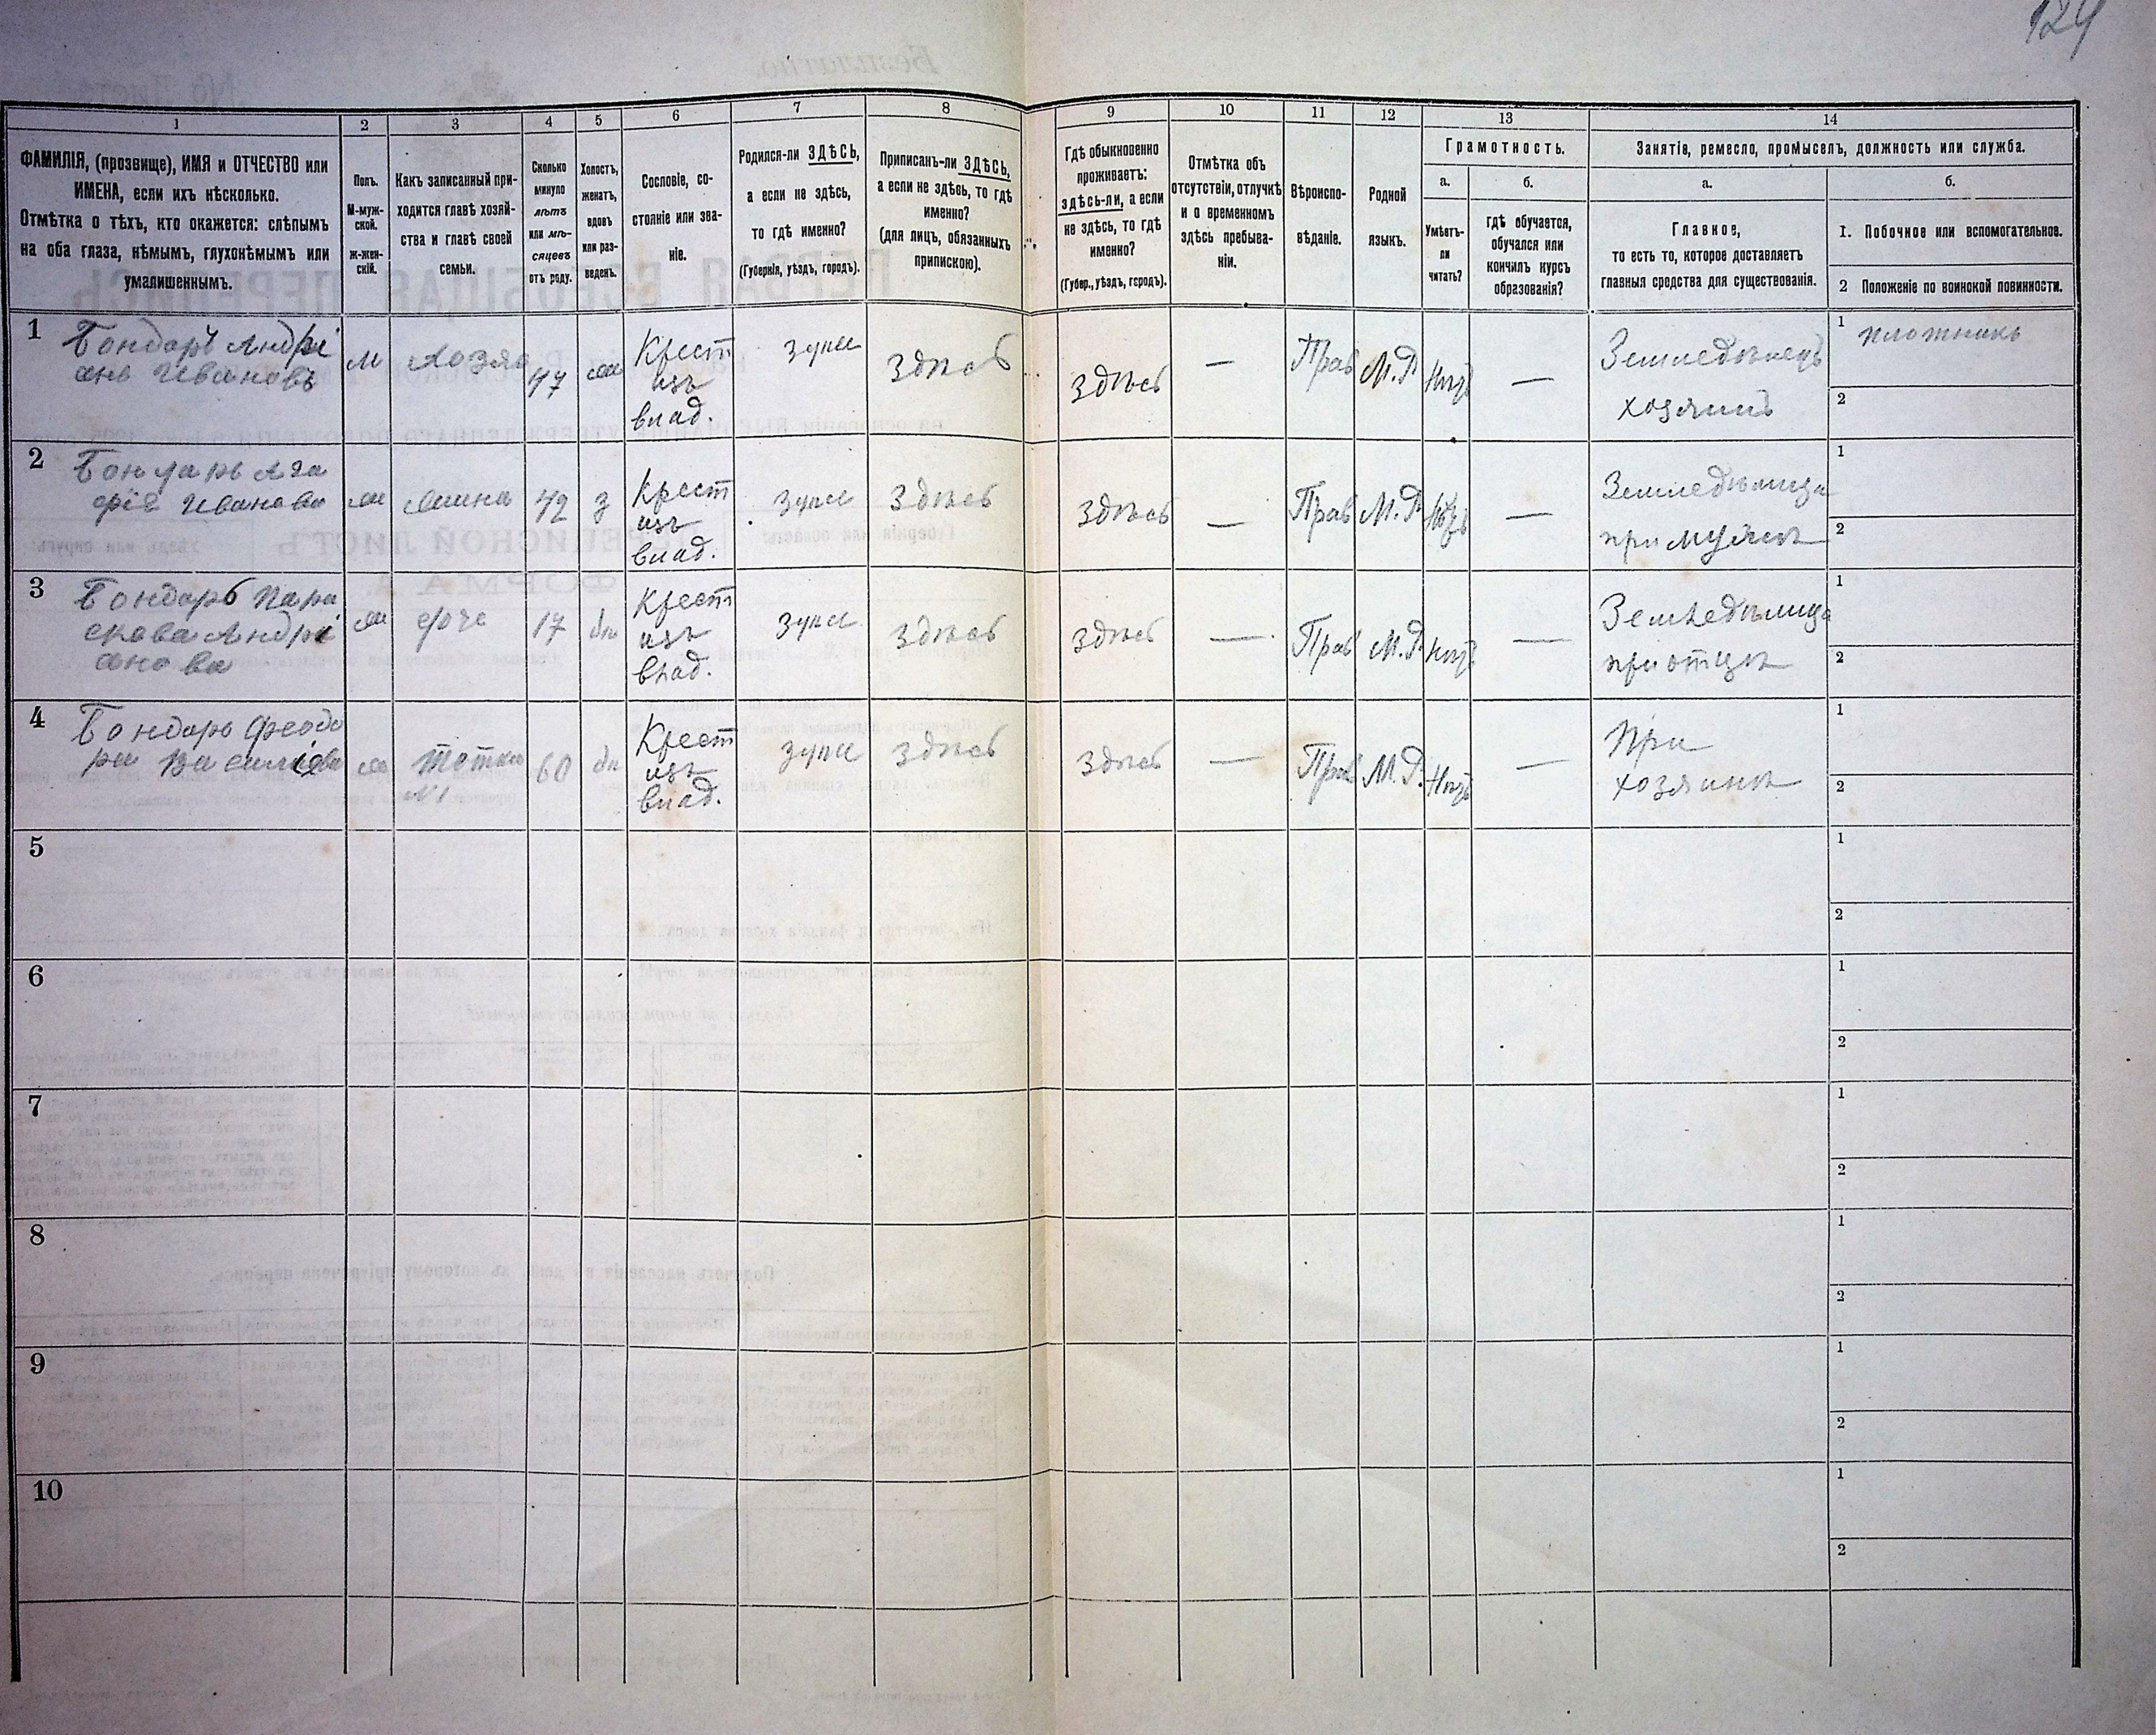 124
1
2
3
4
5
6
7
8
9
10
11
12
13
14
ФАМИЛІЯ, (прозвище), ИМЯ и ОТЧЕСТВО или
ИМЕНА, если ихъ нѣсколько.
Отмѣтка о тѣхъ, кто окажется: слѣпымъ
на оба глаза, нѣмымъ, глухонѣмымъ или
умалишеннымъ.
Полъ.
М-муж-
ской.
ж-жен-
скій.
Какъ записанный при-
ходится главѣ хозяй-
ства и главѣ своей
семьи.
Сколько
минуло
лѣтъ
или мѣ-
сяцевъ
отъ роду.
Холостъ,
женатъ,
вдовъ
или раз-
веденъ.
Сословіе, со-
стояніе или зва-
ніе.
Родился-ли ЗДѢСЬ,
а если не здѣсь,
то гдѣ именно?
(Губернія, уѣздъ, городъ).
Приписанъ-ли ЗДѢСЬ,
а если не здѣсь, то гдѣ
именно?
(для лицъ, обязанныхъ
припискою).
Гдѣ обыкновенно
проживаетъ:
здѣсь-ли, а если
не здѣсь, то гдѣ
именно?
(Губер., уѣздъ, городъ).
Отмѣтка объ
отсутствіи, отлучкѣ
и о временномъ
здѣсь пребыва-
ніи.
Вѣроиспо-
вѣданіе.
Родной
языкъ.
Грамотность.
а.
Умѣетъ-
ли
читать?
б.
гдѣ обучается,
обучался или
кончилъ курсъ
образованія?
Занятіе, ремесло, промыселъ, должность или служба.
а.
Главное,
то есть то, которое доставляетъ
главныя средства для существованія.
б.
I. Побочное или вспомогательное.
2 Положеніе по воинской повинности.
1
Бондарь Андрі
анъ Ивановъ
м
хозяи
47
Крест
изъ
влад.
здѣсь
здѣсь
—
Прав
М.Р
—
Земледѣлецъ
хозяинъ
1 плотникъ
2
2
Бондарь Ага
фія Иванова
42
з
Крест
изъ
влад.
здѣсь
здѣсь
—
Прав
М.Р
—
Земледѣлица
при мужѣ
1
2
3
Бондарь Пара
скева Андрі
анова
17
Крест
изъ
влад.
здѣсь
здѣсь
—
Прав
М.Р
—
Земледѣлица
при отцѣ
1
2
4
Бондарь Феодо
ра Василіева
тетка
№ 1
60
Крест
изъ
влад.
здѣсь
здѣсь
—
Прав
М.Р.
—
При
хозяинѣ
1
2
5
1
2
6
1
2
7
1
2
8
1
2
9
1
2
10
1
2